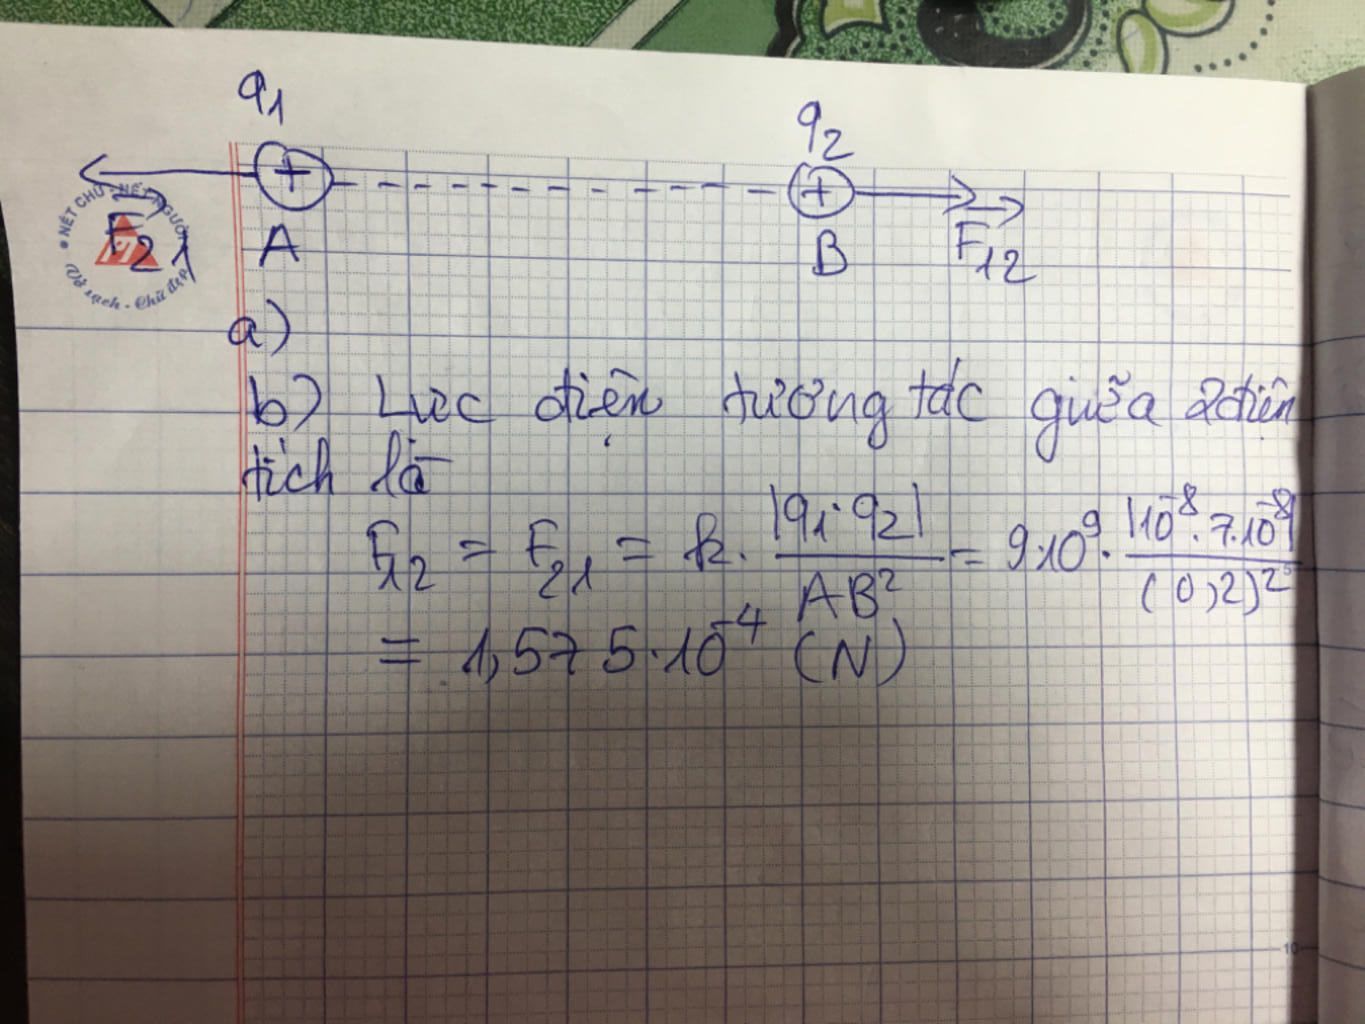 q₁ q₂
+ +
F₂₁ A B F₁₂
NÉT CHỮ - NẾT NGƯỜI
Vở sạch - Chữ đẹp
a)
b) Lực điện tương tác giữa 2 điện
tích là
F₁₂ = F₂₁ = k. |q₁.q₂| / AB² = 9.10⁹. |10⁻⁸.7.10⁻⁸| / (0,2)²
= 1,575.10⁻⁴ (N)
10